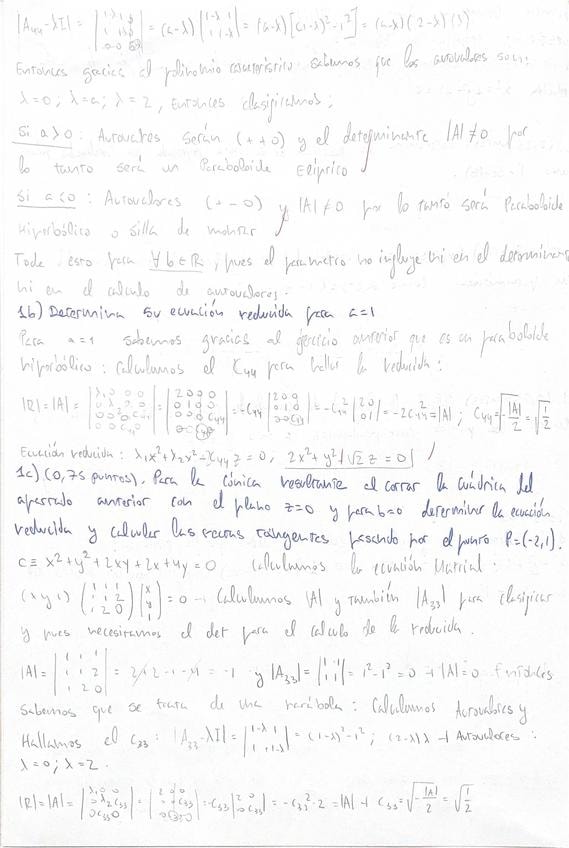 |A₄₄-λI| = |1-λ 1 0; 1 1-λ 0; 0 0 a-λ| = (a-λ) |1-λ 1; 1 1-λ| = (a-λ) [(1-λ)²-1²] = (a-λ)(2-λ)(λ)
Entonces gracias al polinomio característico sabemos que los autovalores son:
λ=0; λ=a; λ=2, Entonces clasificamos:
Si a>0: Autovalores serán (++0) y el determinante |A|≠0 por
lo tanto será un Paraboloide Elíptico
Si a<0: Autovalores (+-0) y |A|≠0 por lo tanto será Paraboloide
Hiperbólico o silla de montar
Todo esto para ∀b∈ℝ, pues el parametro no influye ni en el determinante
ni en el calculo de autovalores.
1b) Determina su ecuación reducida para a=1
Para a=1 sabemos gracias al ejercicio anterior que es un paraboloide
hiperbólico: Calculamos el C₄₄ para hallar la reducida:
|R|=|A|= = -C₄₄ = -C₄₄² |2 0; 0 1| = -2C₄₄² = |A|; C₄₄=√-|A|/2 = √1/2
Ecuación reducida: 2x²+y²+√2 z=0
1c) (0,75 puntos). Para la cónica resultante al cortar la cuádrica del
apartado anterior con el plano z=0 y para b=0 determinar la ecuación
reducida y calcular las rectas tangentes pasando por el punto P=(-2,1).
C≡ x²+y²+2xy+2x+4y=0 Calculamos la ecuación Matricial.
(x y 1) (1 1 1; 1 1 2; 1 2 0) (x; y; 1) = 0 → Calculamos |A| y también |A₃₃| para clasificar
y pues necesitamos el det para el calculo de la reducida.
|A|= |1 1 1; 1 1 2; 1 2 0| = 2+2-1-4 = -1 y |A₃₃|= |1 1; 1 1| = 1²-1² = 0 → |A|=0 Entonces
Sabemos que se trata de una parábola: Calculamos Autovalores y
Hallamos el C₃₃: |A₃₃-λI| = |1-λ 1; 1 1-λ| = (1-λ)²-1²; (2-λ)λ → Autovalores:
λ=0; λ=2.
|R|=|A|= = -C₃₃ = -C₃₃²·2 = |A| → C₃₃=√-|A|/2 = √1/2